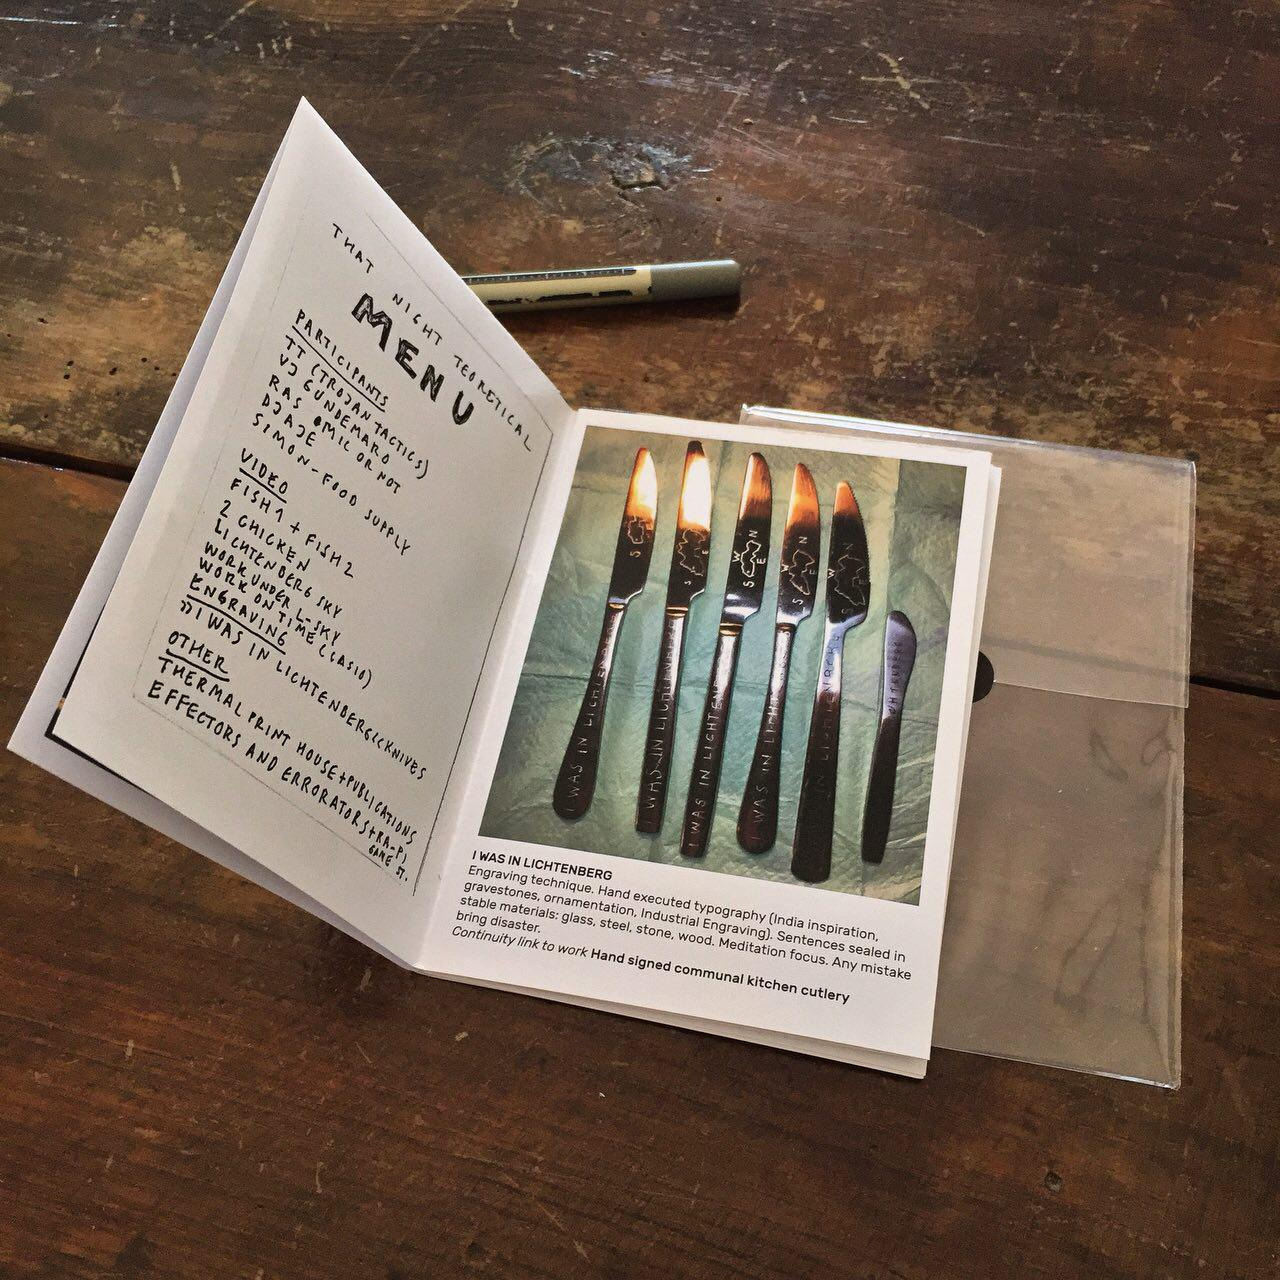 THAT NIGHT TEORETICAL
MENU
PARTICIPANTS
TT (TROJAN TACTICS)
VJ GUNDEMARO
RAS MIC OR NOT
DJAJE
SIMON-FOOD SUPPLY
VIDEO
FISH 1 + FISH 2
2 CHICKEN
LICHTENBERG SKY
WORK UNDER L-SKY
WORK ON TIME (CASIO)
ENGRAVING
"I WAS IN LICHTENBERG" KNIVES
OTHER
THERMAL PRINT HOUSE+PUBLICATIONS
EFFECTORS AND ERRORATORS+RA-P)
GAME ST.
S W N E
S W N E
S W N E
S W N E
S W N E
I WAS IN LICHTENBERG
I WAS IN LICHTENBERG
I WAS IN LICHTEN
I WAS IN LICHT
IN LICHTENBERG
LICHTENBERG
I WAS IN LICHTENBERG
Engraving technique. Hand executed typography (India inspiration,
gravestones, ornamentation, Industrial Engraving). Sentences sealed in
stable materials: glass, steel, stone, wood. Meditation focus. Any mistake
bring disaster.
Continuity link to work Hand signed communal kitchen cutlery